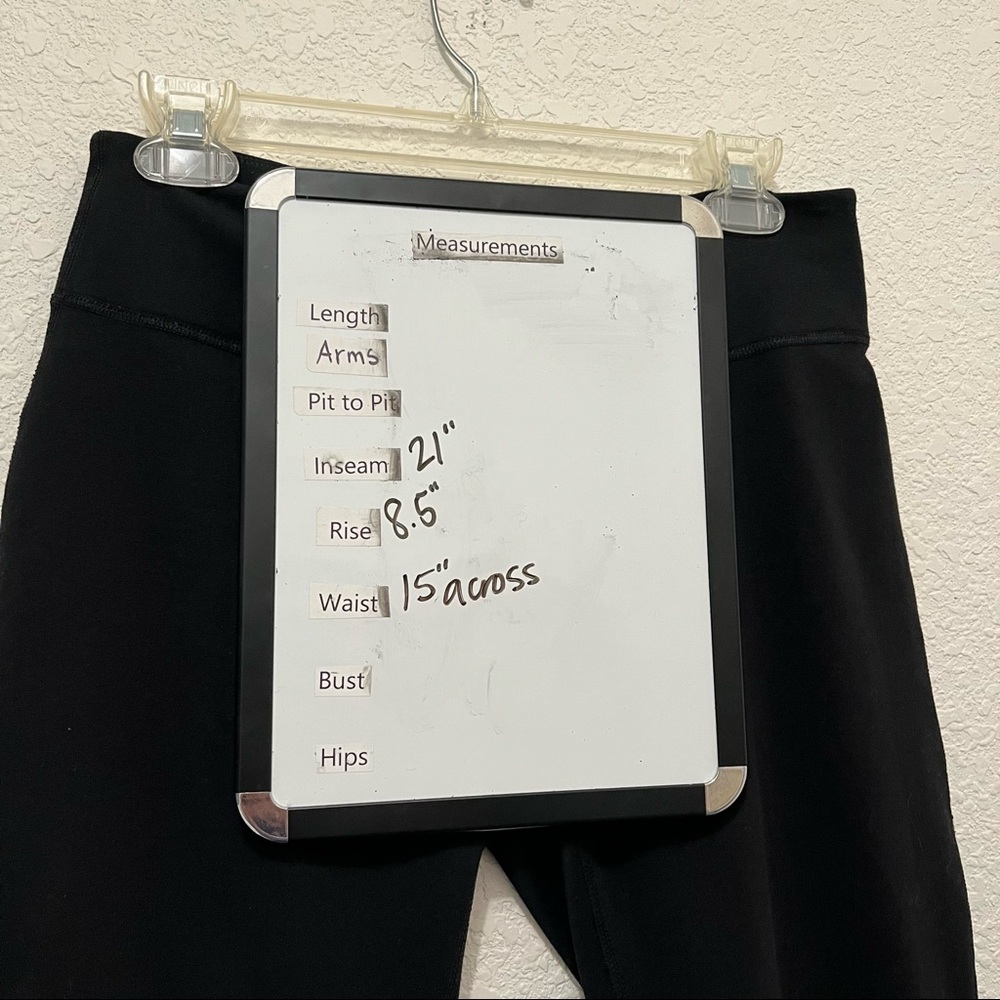 Measurements
Length
Arms
Pit to Pit
Inseam 21"
Rise 8.5"
Waist 15" across
Bust
Hips